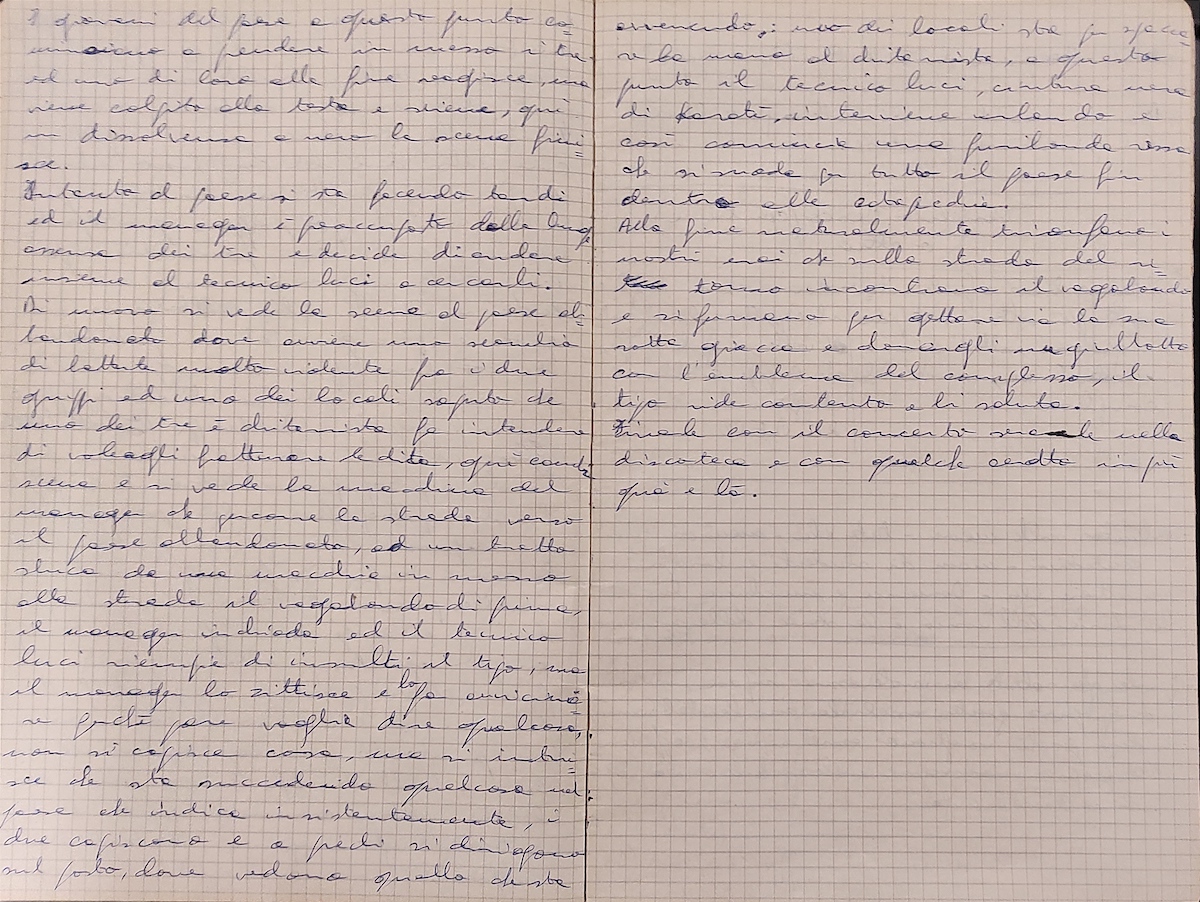 I giovani del paese a questo punto co=
minciano a prendere in mezzo i tre
ed uno di loro alla fine reagisce, ma
viene colpito alla testa e sviene, qui
in dissolvenza a nero la scena fini=
sce.
Intanto al paese si sta facendo tardi
ed il manager è preoccupato della lunga
assenza dei tre e decide di andare
insieme al tecnico luci a cercarli.
Di nuovo si vede la scena al paese ab=
bandonato dove avviene una serie di
di battute molto violente fra i due
gruppi ed uno dei locali saputo che
uno dei tre è chitarrista fa intendere
di volergli fratturare le dita, qui cambia
scena e si vede la macchina del
manager che percorre la strada verso
il paese abbandonato, ad un tratto
sbuca da una macchia in mezzo
alla strada il vagabondo di prima,
il manager inchioda ed il tecnico
luci riempie di insulti il tipo, ma
il manager lo zittisce e lo fa avvicina=
re perchè pare voglia dire qualcosa,
non si capisce cosa, ma si intui=
sce che sta succedendo qualcosa nel
paese che indica insistentemente, i
due capiscono e a piedi si dirigono
sul posto, dove vedono quello che sta
avvenendo,: uno dei locali sta per spacca=
re la mano al chitarrista, a questo
punto il tecnico luci, cintura nera
di Karatè, interviene urlando e
così comincia una furibonda rissa
che si snoda per tutto il paese fin
dentro alle
Alla fine naturalmente trionfano i
nostri eroi che sulla strada del ri=
torno incontrano il vagabondo
e si fermano per gettare via la sua
rotta giacca e donargli un giubbotto
con l'emblema del complesso, il
tipo ride contento e li saluta.
Finale con il concerto serale nella
discoteca e con qualche cerotto in più
quà e là.